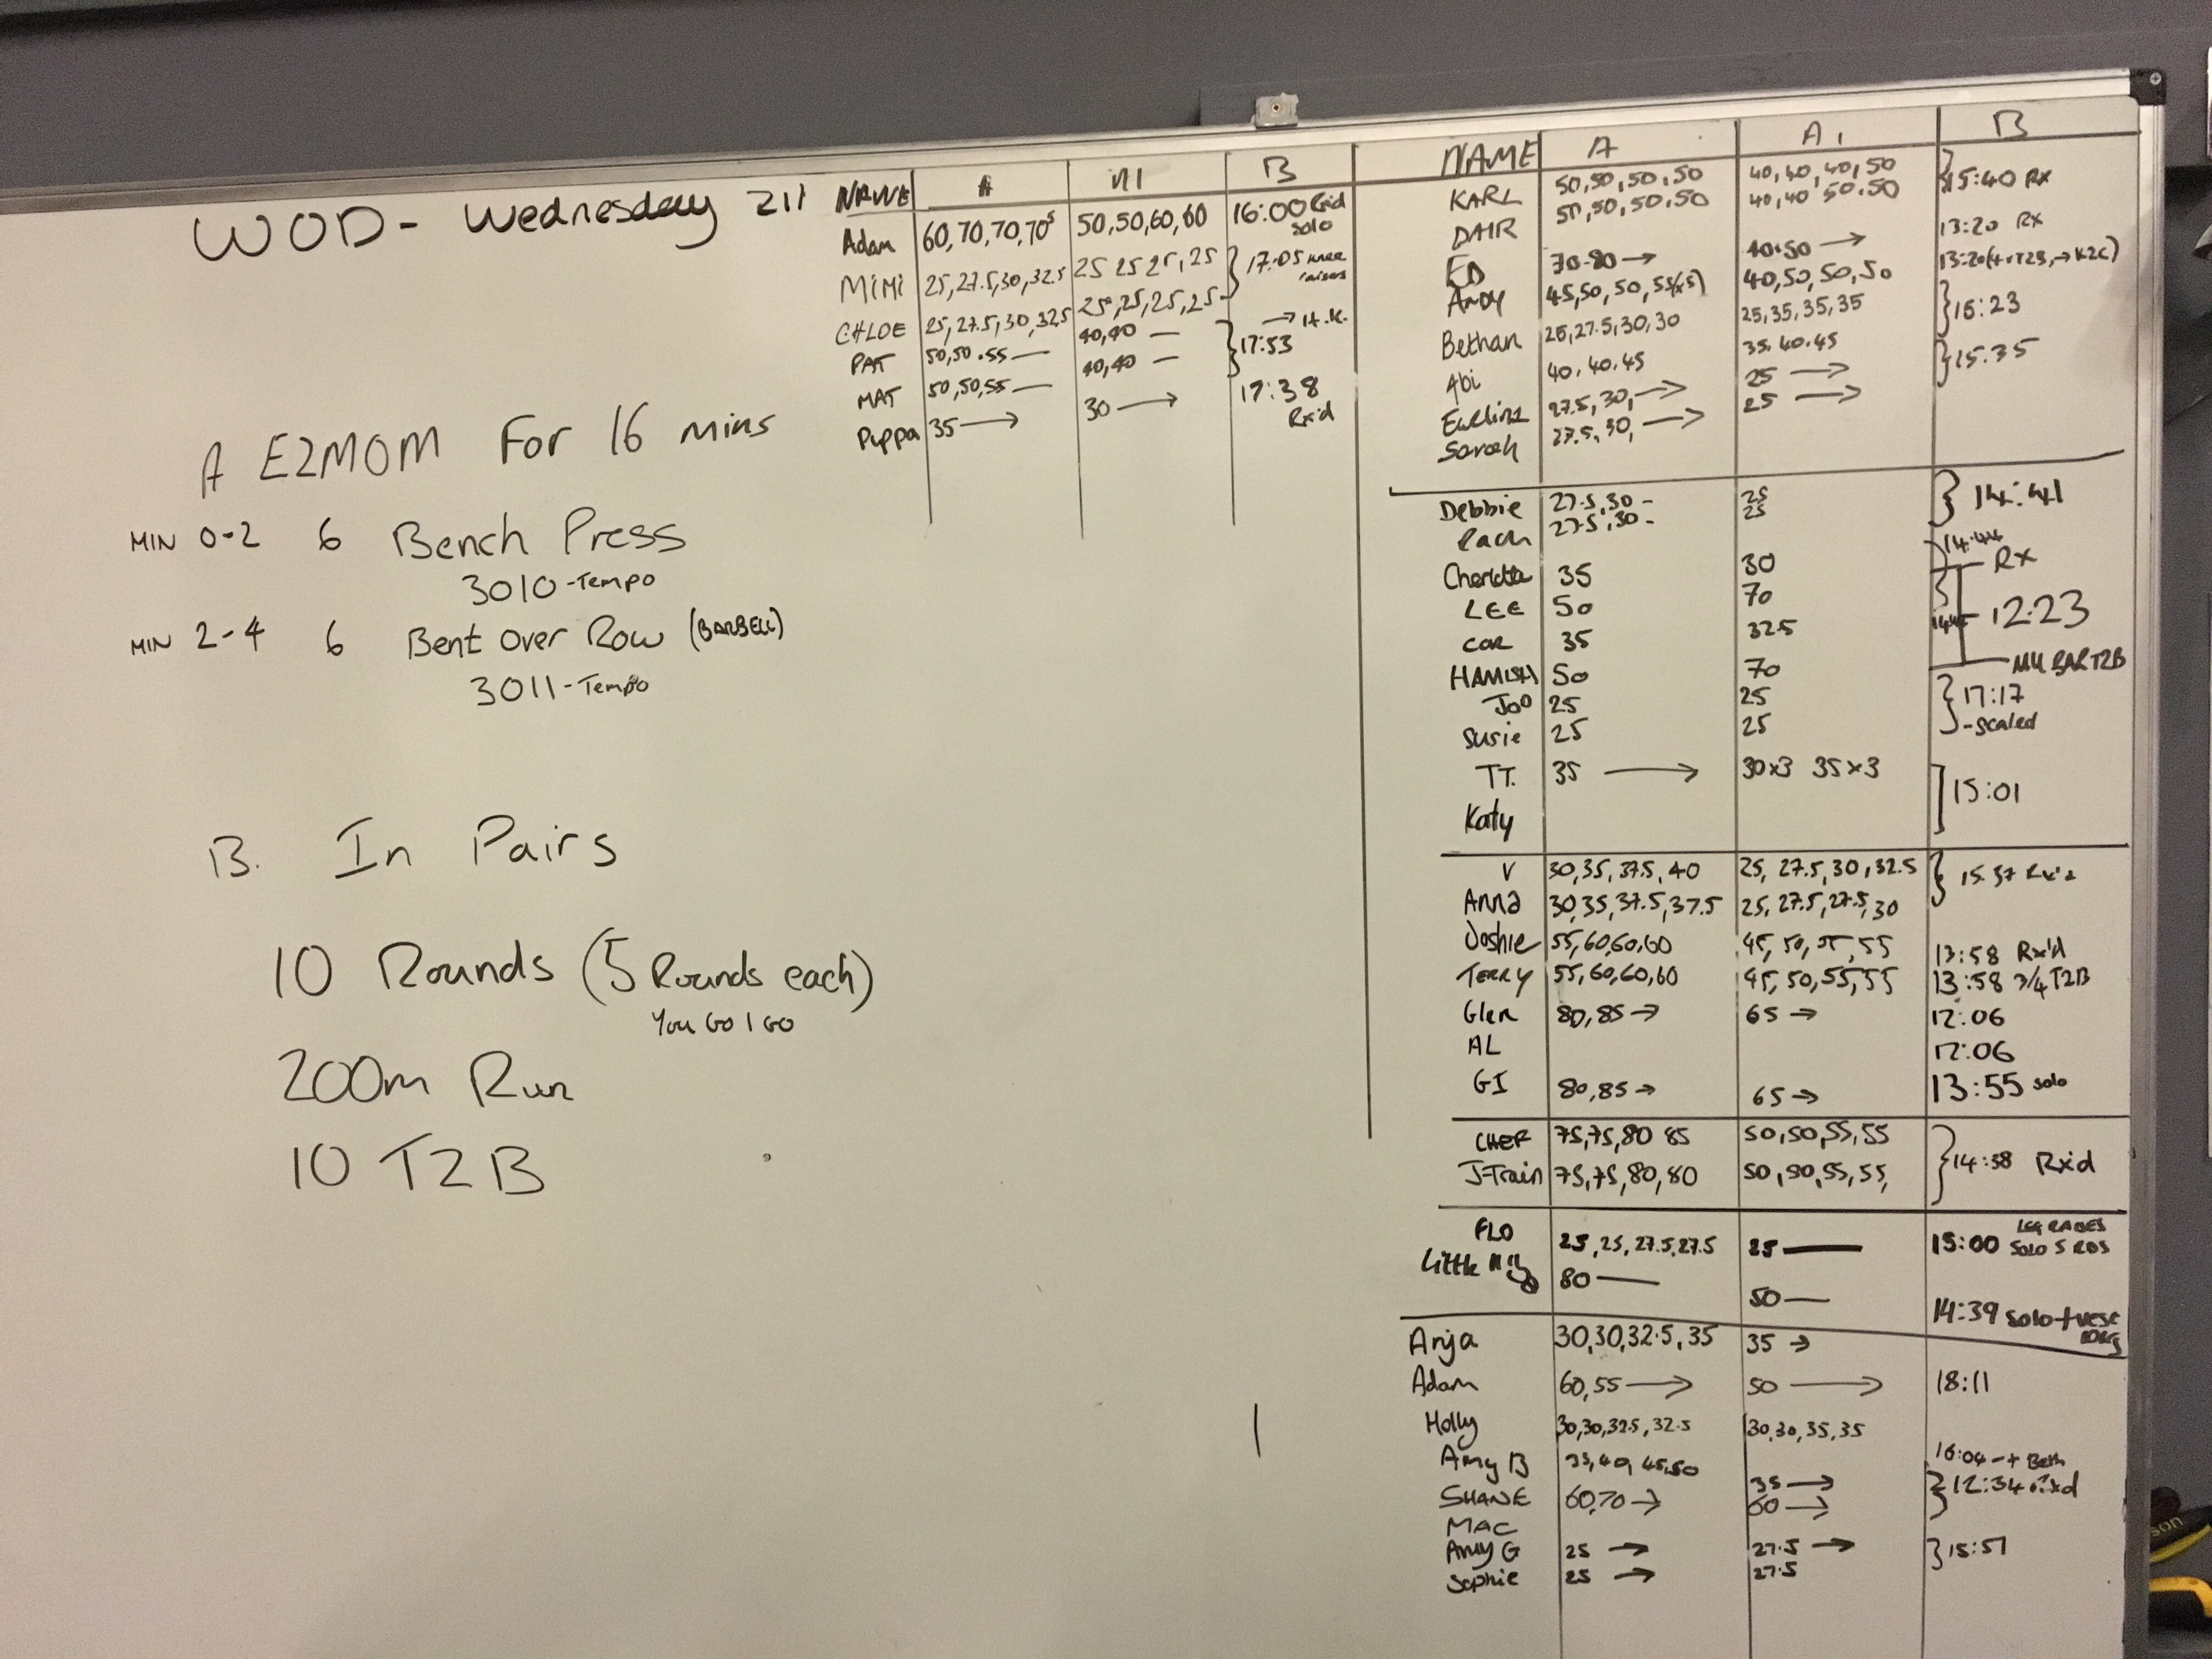 WOD - Wednesday 211
A E2MOM For 16 mins
MIN 0-2 6 Bench Press
3010 - Tempo
MIN 2-4 6 Bent Over Row (BARBELL)
3011 - Tempo
B. In Pairs
10 Rounds (5 Rounds each)
You Go I Go
200m Run
10 T2B
NAME A A1 B
Adam 60,70,70,70⁵ 50,50,60,60 16:00 solo
MiMi 25,27.5,30,32.5 25 25 25,25 17:05 knee raises
CHLOE 25,27.5,30,32.5 25,25,25,25
PAT 50,50.55— 40,40 — 17:53 → H.K.
MAT 50,50,55— 40,40 —
Pippa 35→ 30→ 17:38 Rx'd
NAME A A1 B
KARL 50,50,50,50 40,40,40,50 15:40 Rx
50,50,50,50 40,40 50.50
ED 70-80→ 40.50→ 13:20 Rx
Andy 45,50,50,55(x5) 40,50,50,50 13:20
Bethan 25,27.5,30,30 25,35,35,35 15:23
Abi 40.40.45 35.40.45
Ewelina 27.5,30,→ 25→ 15:35
Sarah 27.5,30,→ 25→
Debbie 27.5,30- 25 14:41
Rach 27.5,30- 25
35 30 14:44
LEE 50 70 Rx
COR 35 32.5 12:23
HAMISH 50 70 BAR T2B
Joo 25 25 17:17
Susie 25 25 -scaled
TT. 35→ 30x3 35x3 15:01
Katy
V 30,35,37.5,40 25,27.5,30,32.5 15:37
Anna 30,35,37.5,37.5 25,27.5,27.5,30
Joshie 55,60,60,60 45,50,55,55 13:58 Rx'd
TERRY 55,60,60,60 45,50,55,55 13:58 3/4 T2B
Glen 80,85→ 65→ 12:06
AL 12:06
GI 80,85→ 65→ 13:55 solo
CHEF 75,75,80 85 50,50,55,55 14:38 Rxd
J-Train 75,75,80,80 50,50,55,55,
FLO 25,25,27.5,27.5 25— 15:00 SOLO 5 RDS
Little 80— 50— 14:39 solo + vest 10kg
Anja 30,30,32.5,35 35→
Adam 60,55→ 50→ 18:11
Holly 30,30,32.5,32.5 30,30,35,35
Amy B 35,40,45,50 35→ 16:04 -+ Beth
SHANE 60,70→ 60→ 12:34
MAC
Amy G 25→ 27.5→ 15:51
Sophie 25→ 27.5